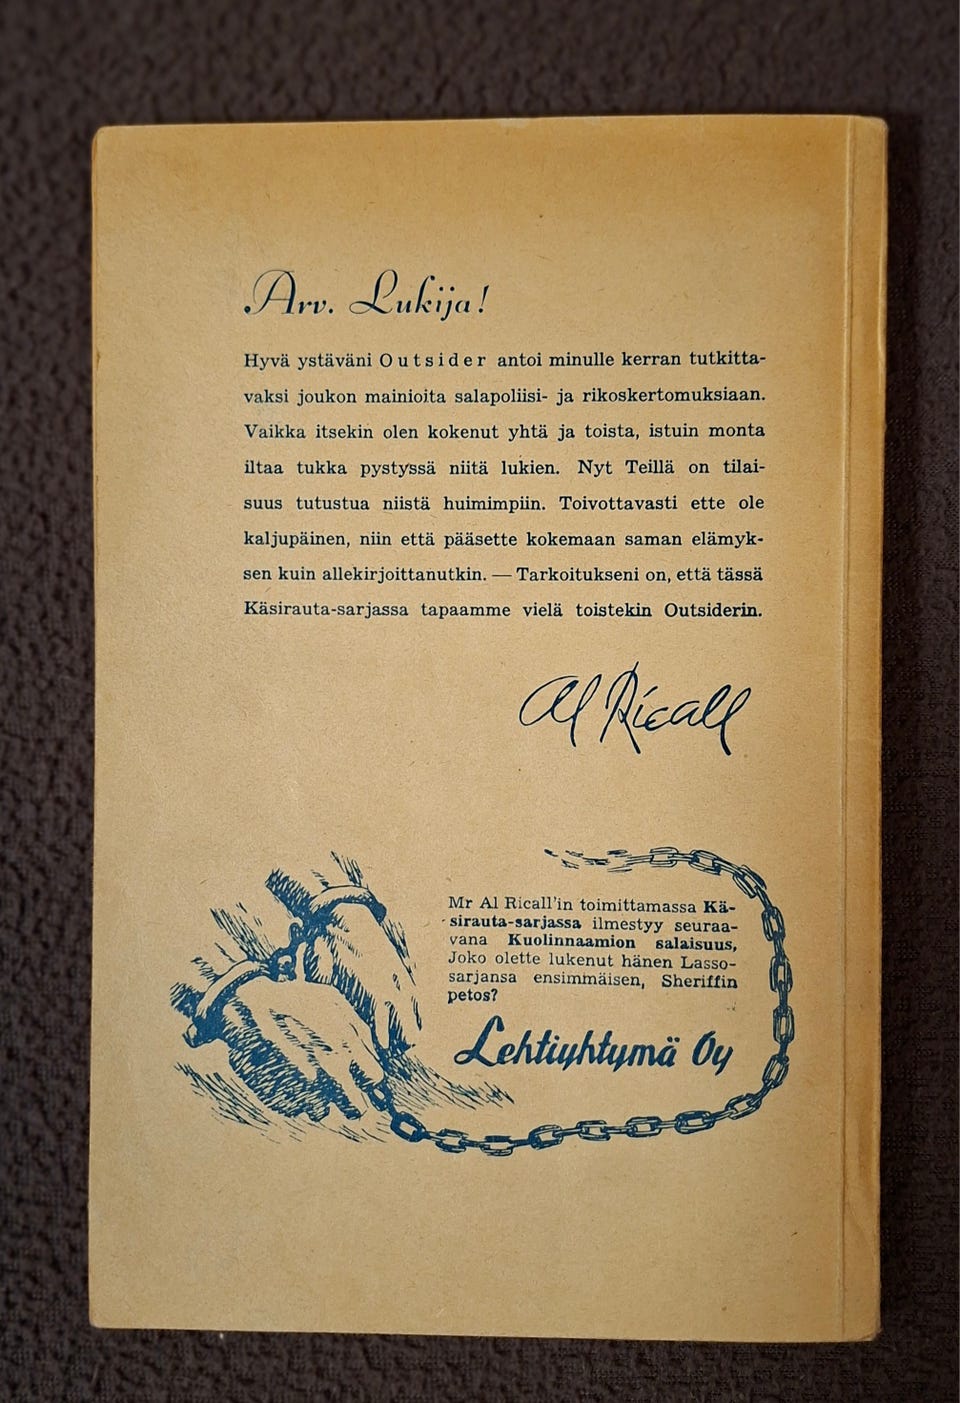 Arv. Lukija!
Hyvä ystäväni Outsider antoi minulle kerran tutkitta-
vaksi joukon mainioita salapoliisi- ja rikoskertomuksiaan.
Vaikka itsekin olen kokenut yhtä ja toista, istuin monta
iltaa tukka pystyssä niitä lukien. Nyt Teillä on tilai-
suus tutustua niistä huimimpiin. Toivottavasti ette ole
kaljupäinen, niin että pääsette kokemaan saman elämyk-
sen kuin allekirjoittanutkin. — Tarkoitukseni on, että tässä
Käsirauta-sarjassa tapaamme vielä toistekin Outsiderin.
Al Ricall
Mr Al Ricall'in toimittamassa Kä-
sirauta-sarjassa ilmestyy seuraa-
vana Kuolinnaamion salaisuus,
Joko olette lukenut hänen Lasso-
sarjansa ensimmäisen, Sheriffin
petos?
Lehtiyhtymä Oy